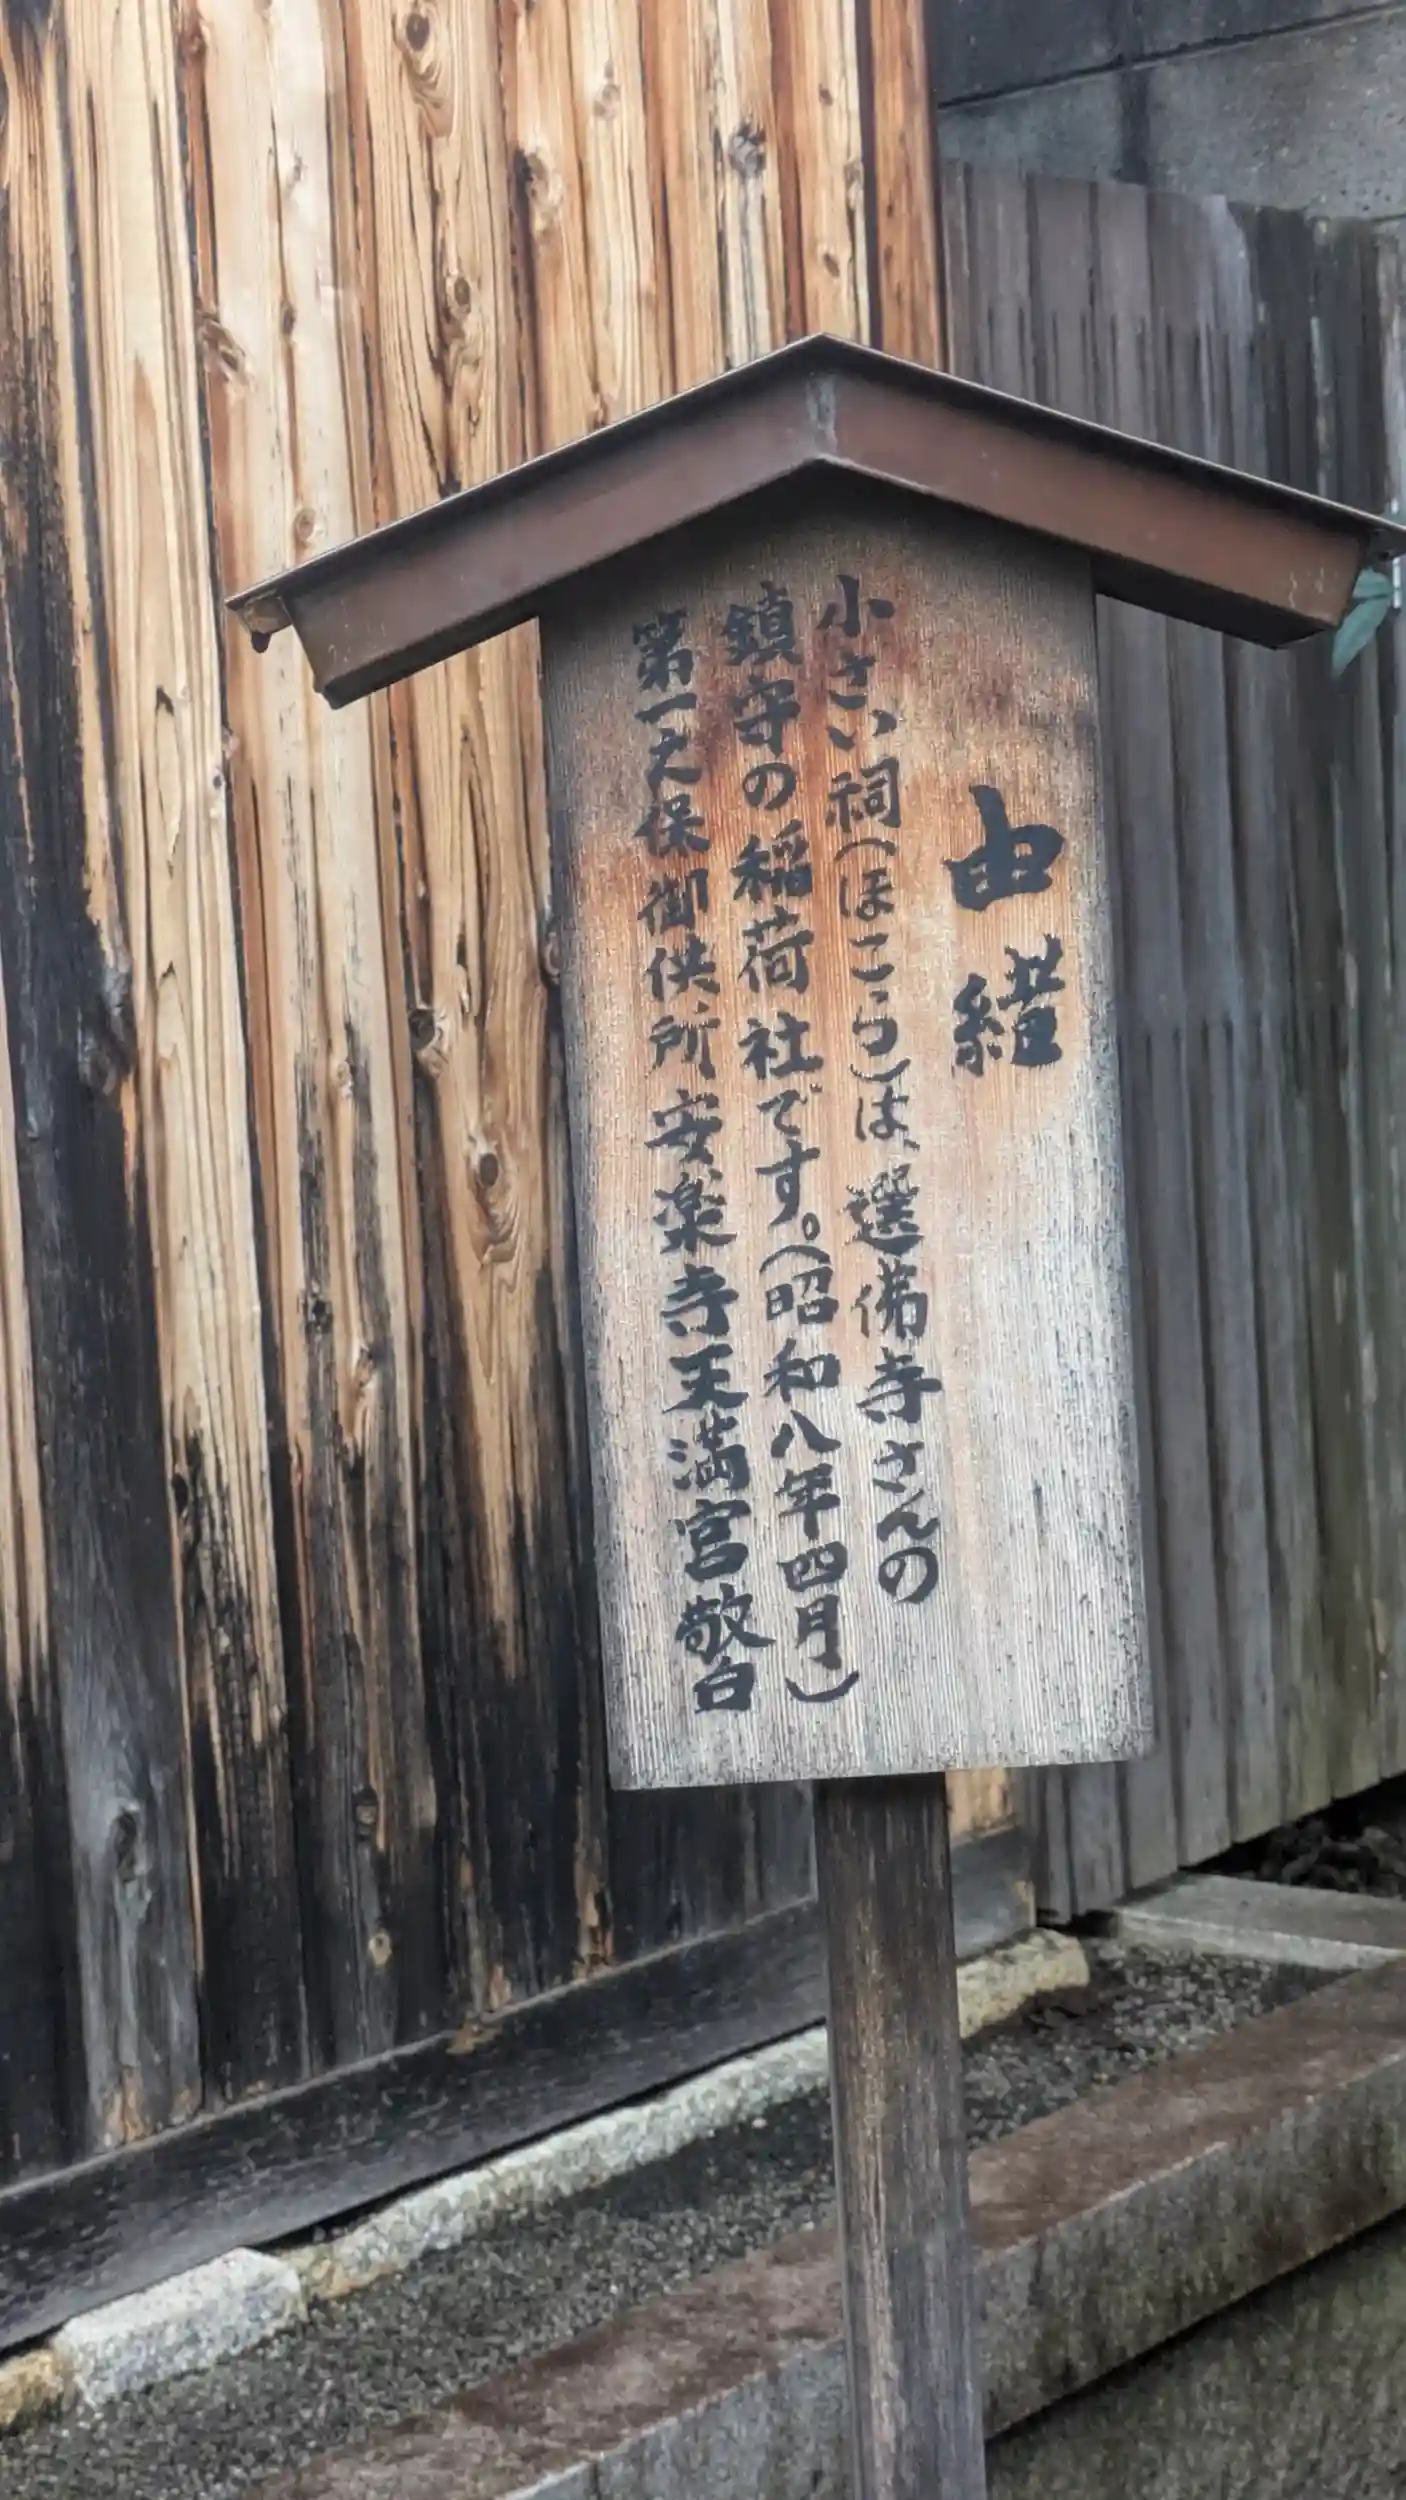 由緒
小さい祠(ほこら)は、選佛寺さんの
鎮守の稲荷社です。(昭和八年四月)
第一天保御供所安楽寺天満宮敬白